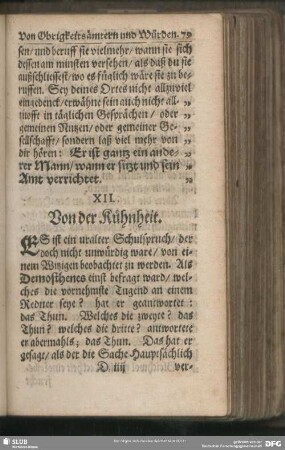 Von Obrigkeitsämtern und Würden. 79
sen/ und beruff sie vielmehr/ wann sie sich
dessen am minsten versehen/ als daß du sie
außschliessest/ wo es füglich wäre sie zu be-
ruffen. Sey deines Ortes nicht allzuviel
eingedenck/ erwähne sein auch nicht all-
zuofft in täglichen Gesprächen/ oder „
gemeinen Nutzen/ oder gemeiner Ge- „
sellschafft/ sondern laß viel mehr von „
dir hören: Er ist gantz ein ande- „
rer Mann/ wann er sitzt und sein „
Amt verrichtet. „
XII.
Von der Kühnheit.
ES ist ein uralter Schulspruch/ der
doch nicht unwürdig ware/ von ei-
nem Witzigen beobachtet zu werden. Als
Demosthenes einst befragt ward/ wel-
ches die vornehmste Tugend an einem
Redner seye? hat er geantwortet:
das Thun. Welches die zweyte? das
Thun? welches die dritte? antwortete
er abermahls; das Thun. Das hat er
gesagt/ als der die Sache Hauptsächlich
D iiij ver-
SLUB
DFG